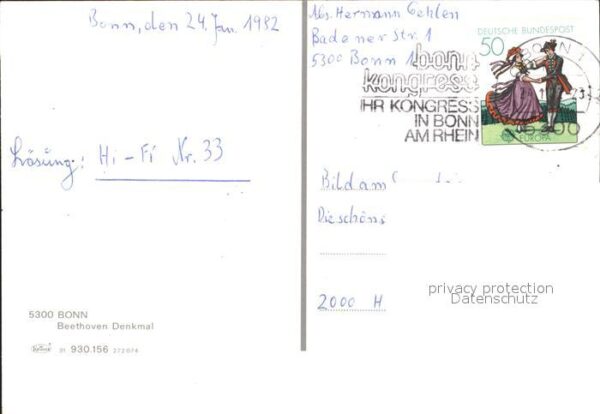 Bonn, den 24. Jan. 1982
Lösung: Hi-Fi Nr. 33
5300 BONN
Beethoven Denkmal
91 930.156 272074
Abs. Hermann Gehlen
Badener Str. 1
5300 Bonn 1
bonn
kongress
IHR KONGRESS
IN BONN
AM RHEIN
DEUTSCHE BUNDESPOST
50
EUROPA
BONN 1
5300
Bild am
Die schöns
2000 H
privacy protection
Datenschutz